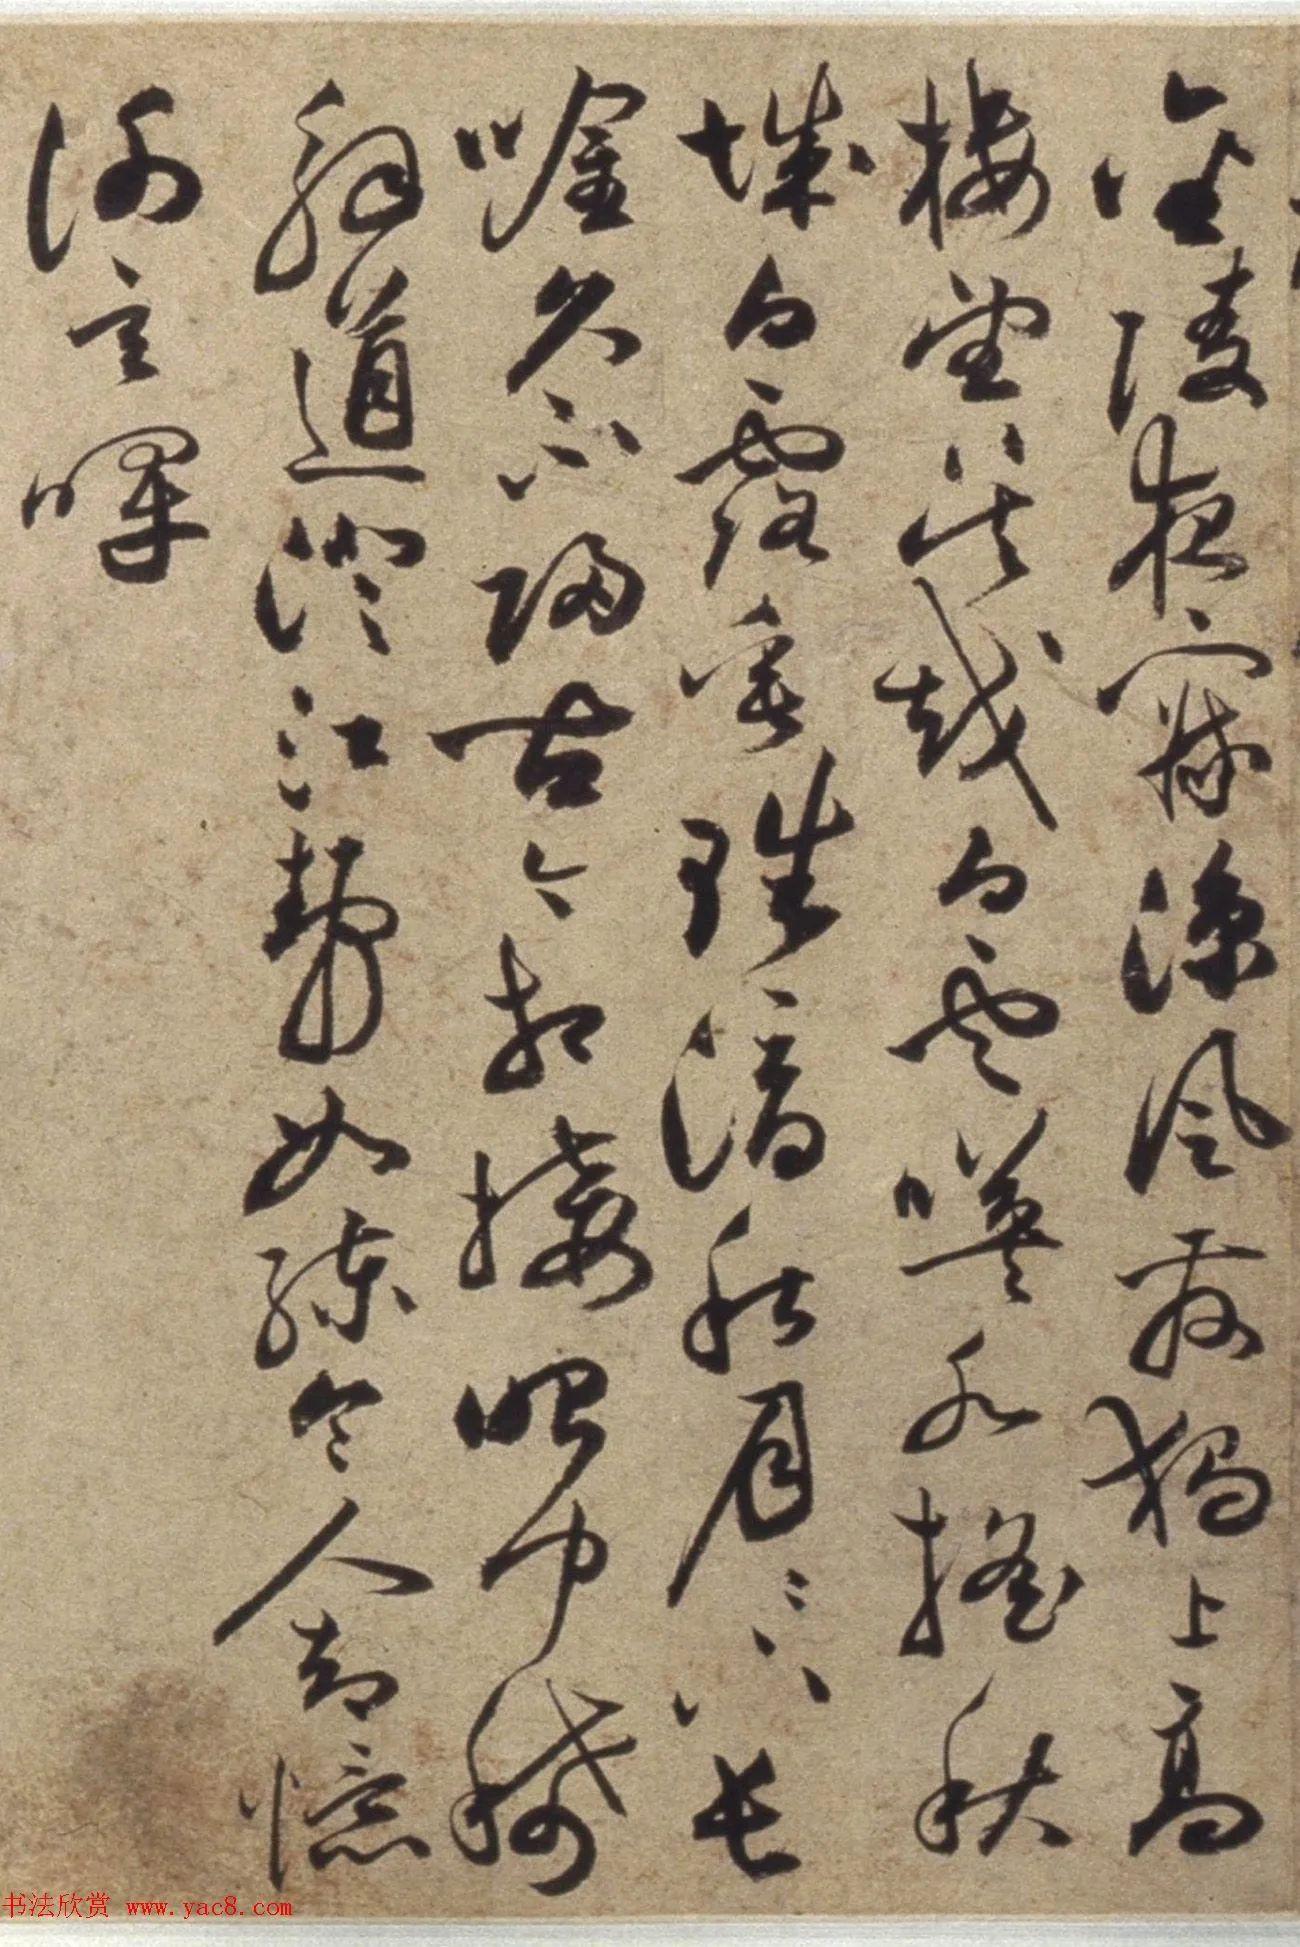 金陵夜寂涼風發獨上高
樓望吳越白雲暎水搖秋
城白露垂珠滴秋月〻下長
唫久不歸古今相接眼中稀
解道澄江靜如練令人却憶
謝玄暉
书法欣赏 www.yac8.com